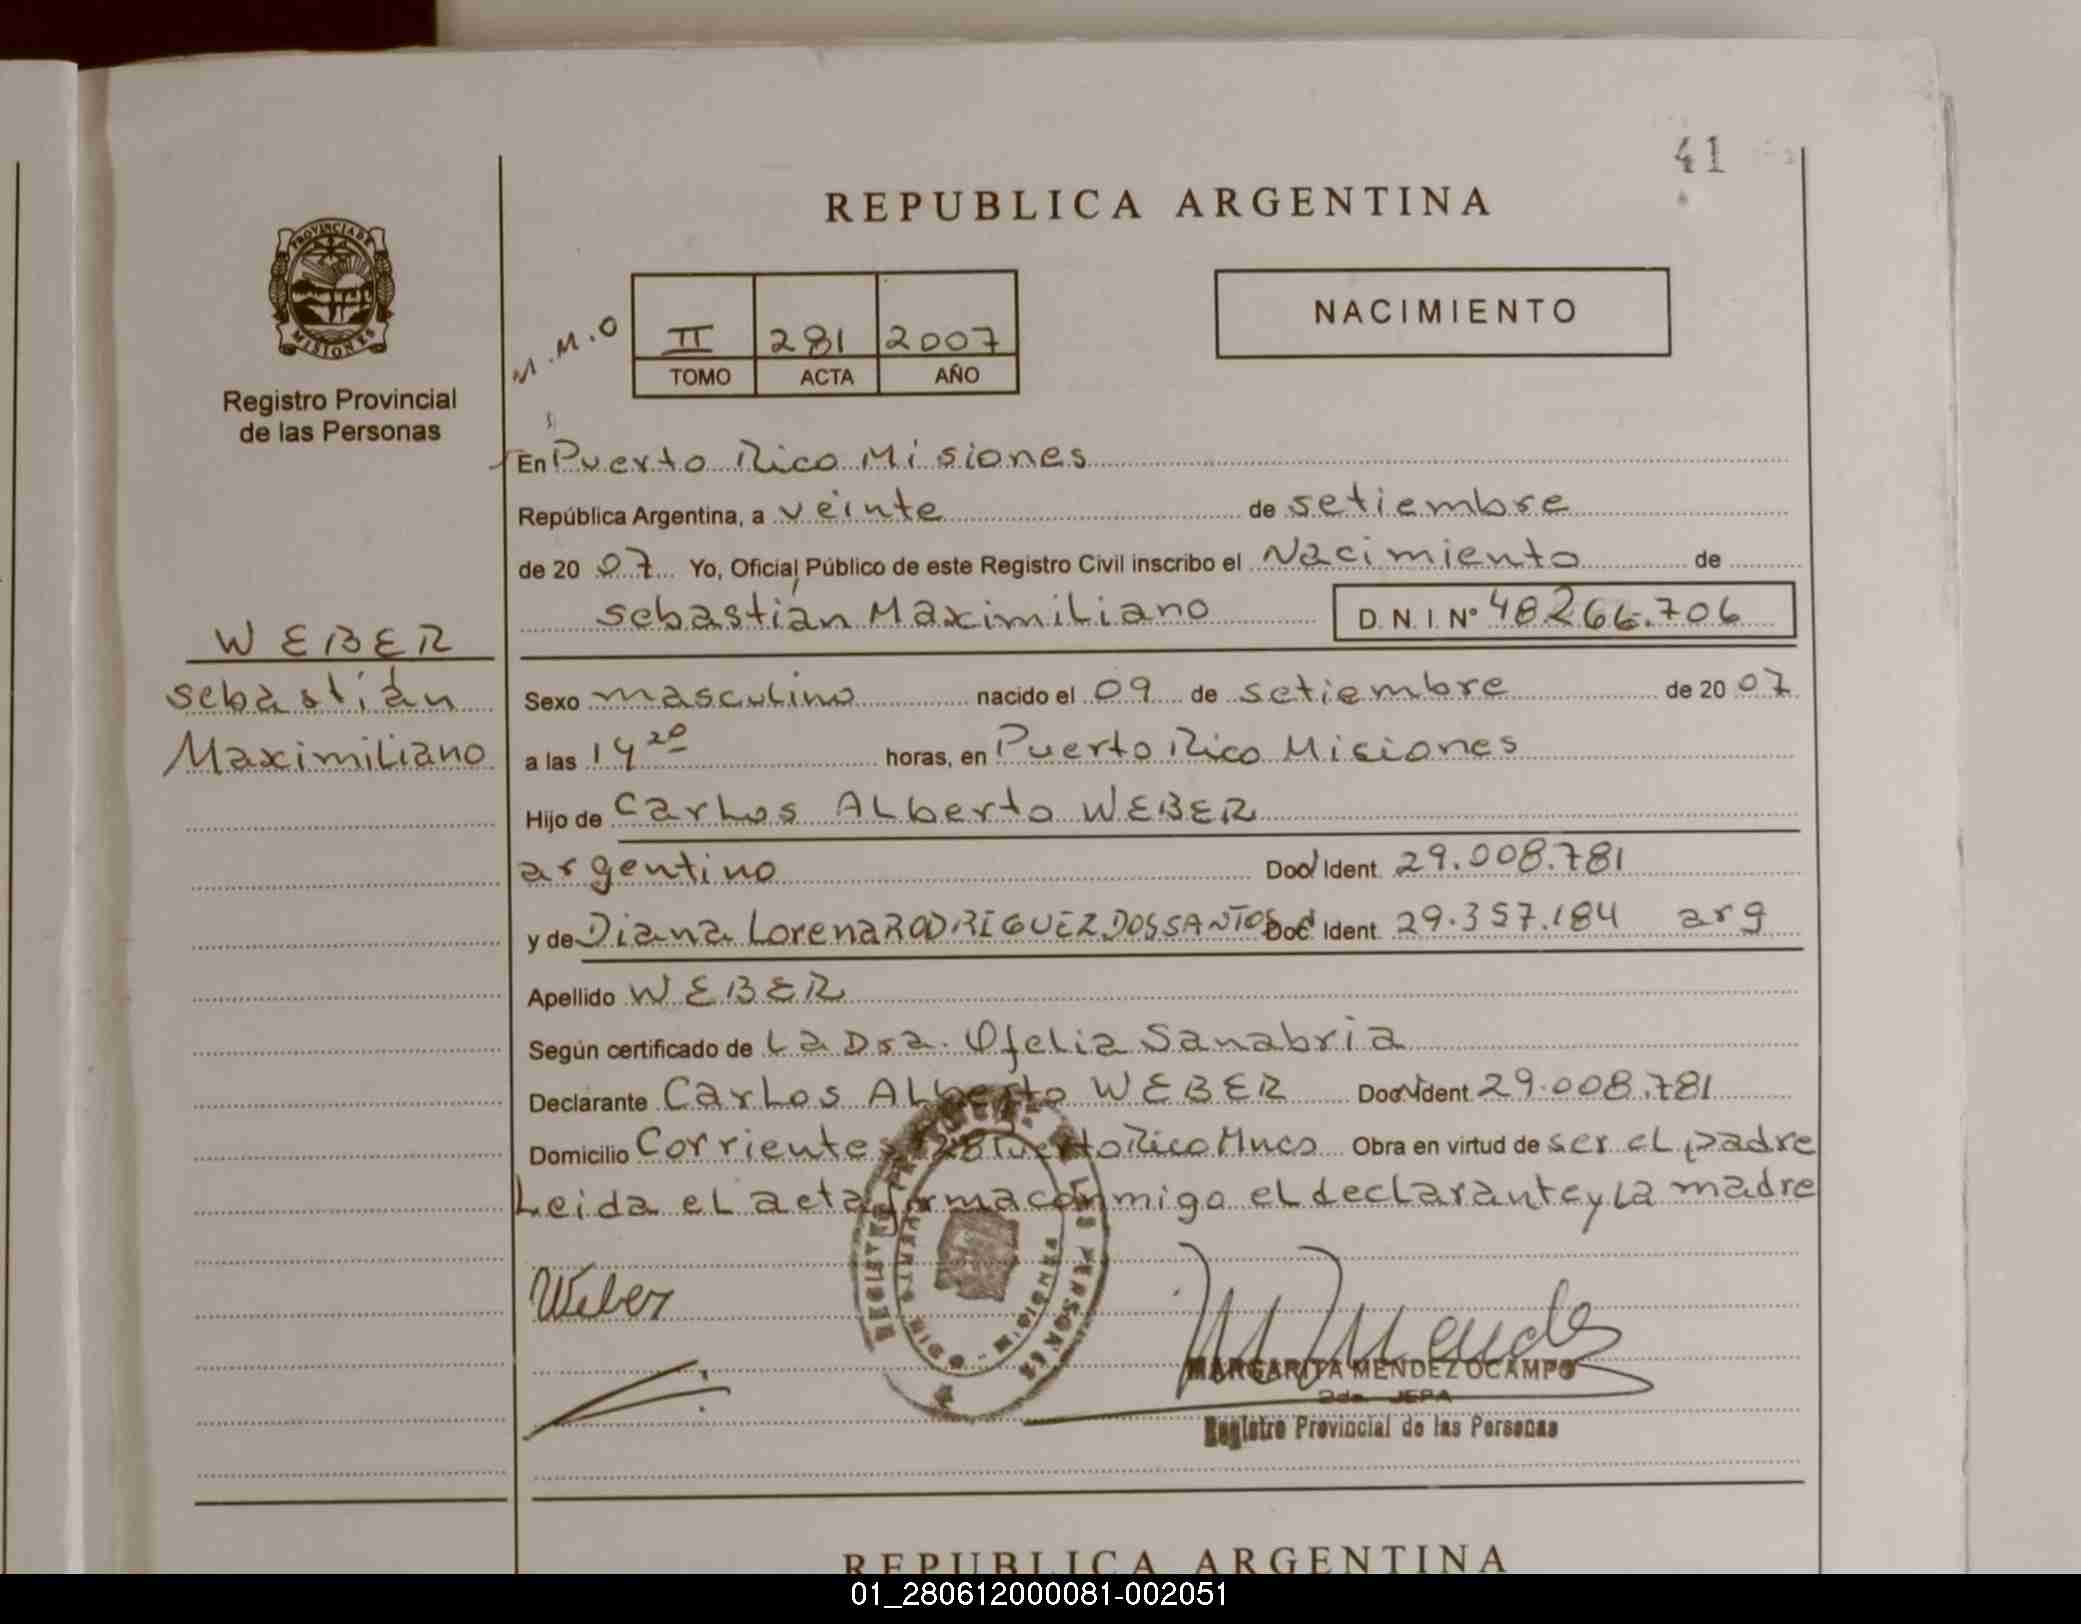 41
REPUBLICA ARGENTINA
PROVINCIA DE
MISIONES
Registro Provincial
de las Personas
M.M.O
II 281 2007
TOMO ACTA AÑO
NACIMIENTO
En Puerto Rico Misiones
República Argentina, a veinte de setiembre
de 20 07 Yo, Oficial Público de este Registro Civil inscribo el Nacimiento de
Sebastián Maximiliano D. N. I. Nº 48266.706
WEBER
Sebastián
Maximiliano
Sexo masculino nacido el 09 de setiembre de 20 07
a las 14 20 horas, en Puerto Rico Misiones
Hijo de Carlos Alberto WEBER
argentino Doc Ident. 29.008.781
y de Diana Lorena RODRIGUEZ DOS SANTOS Doc Ident. 29.357.184 arg
Apellido WEBER
Según certificado de La Dra. Ofelia Sanabria
Declarante Carlos Alberto WEBER Doc Ident 29.008.781
Domicilio Corrientes Puerto Rico Mnes Obra en virtud de ser el padre
Leida el acta firma conmigo el declarante y la madre
Weber
MARGARITA MENDEZ OCAMPO
2da. JEFA
Registro Provincial de las Personas
REPUBLICA ARGENTINA
01_280612000081-002051